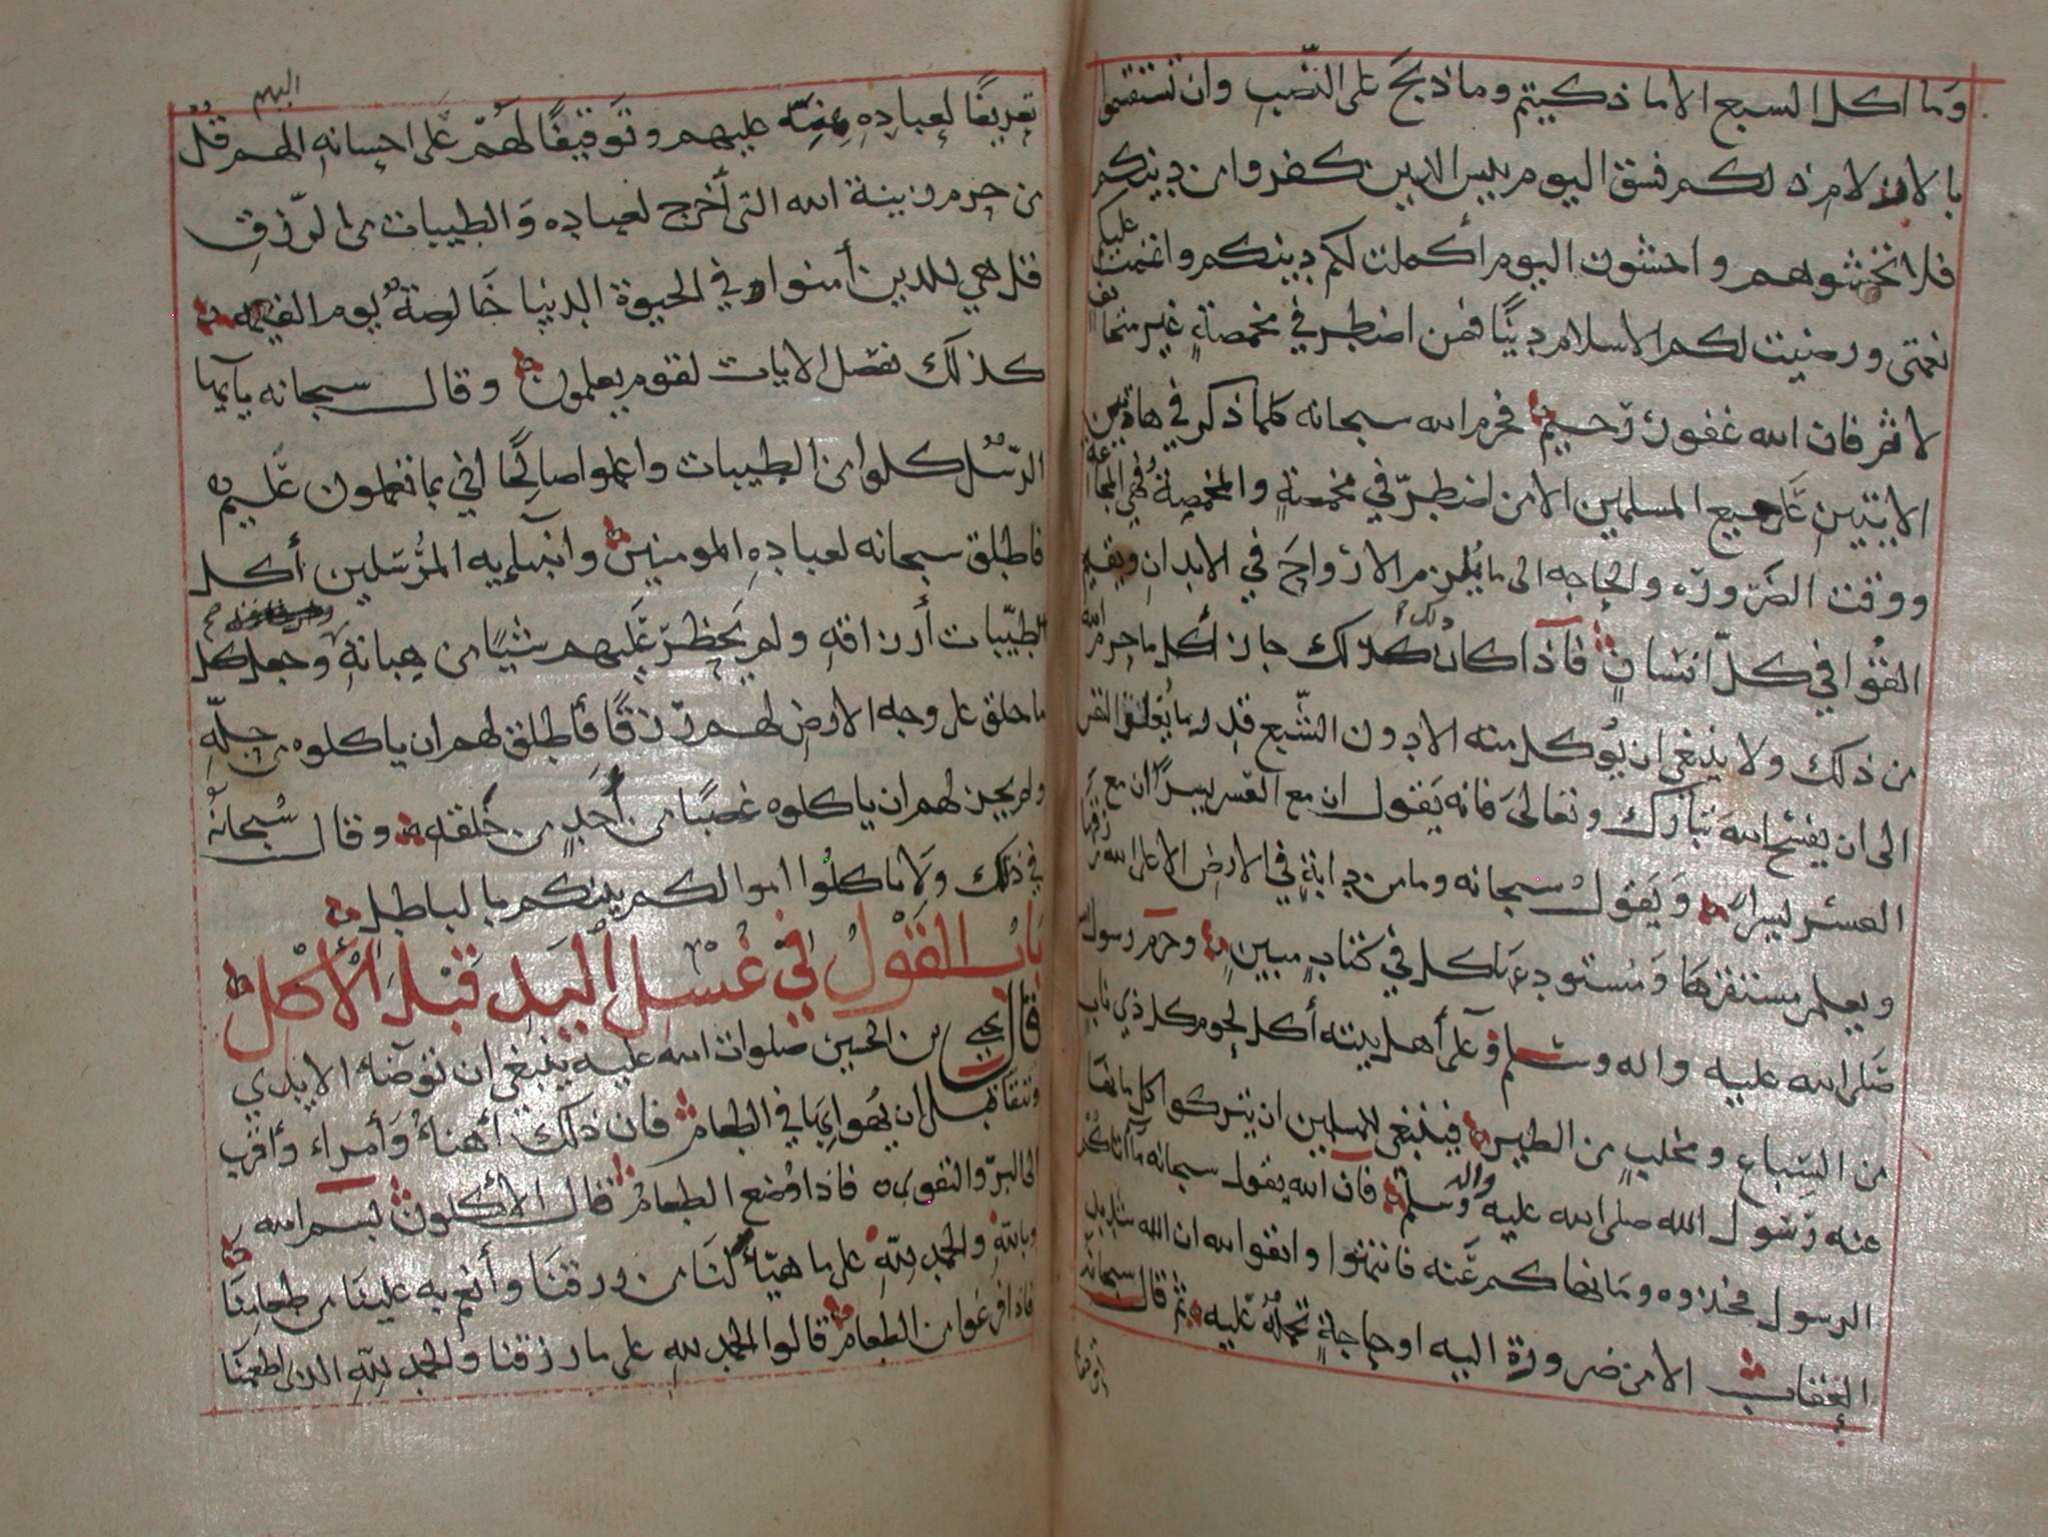 وما اكل السبع الا ما ذكيتم وما ذبح على النصب وان تستقسموا
بالازلام ذلكم فسق اليوم يئس الذين كفروا من دينكم
فلا تخشوهم واخشون اليوم أكملت لكم دينكم واتممت عليكم
نعمتي ورضيت لكم الاسلام دينًا فمن اضطر في مخمصةٍ غير متجانف
لاثم فان الله غفور رّحيم فحرم الله سبحانه كلما ذكر في هاتين
الايتين على جميع المسلمين الا من اضطرّ في مخمصةٍ والمخمصةُ فهي المجاعة
ووقت الضرورة والحاجه الى ما يُلزم الارواحَ في الابدان ويقيم
القُوا في كلّ انسان فاذا كان ذلك كذلك جاز أكل ما حرم الله
من ذلك ولا ينبغي ان يؤكل منه الا دون الشّبع قدر ما
الى ان يفسّح الله تبارك وتعالىَ فانه يَقول ان مع العسر يسرًا ان مع
العسر يسرا وَيَقولُ سبحانه وما من دابةٍ في الارض الا على الله رزقها
ويعلم مستقرهَا وَمُستودعهَا كل في كتابٍ مبينٍ وحرم رسول
صَلى الله عليه واله وسلم وعَلَى أهل بيته أكل لحوم كل ذي ناب
من السّباع ومخلبٍ من الطير فينبغي للمسلمين ان يتركوا اكل ما نها
عنه رّسول الله صلى الله عليه واله وسلم فان الله يقول سبحانه ما آتاكمُ
الرسول فخذوه ومَا نهاكم عَنه فانتهوا واتقوا الله ان الله شديد
العقاب الا من ضرورة اليه او حاجةٍ تحملهُ عليه ثم قال سبحانه
تعريفًا لعبادِهِ عليهم وتَوقيفًا لهُم عَلَى احسانهِ اليهم قُلْ
من حرم زينة الله التى أخرج لعباده وَالطيبات من الرّزقِ
قل هي للذين أمنوا في الحيوة الدنيا خَالصةً يوم القيمه
كذلك نفصل الايات لقوم يعلمون وقال سبحانه يآيها
الرّسُل كلوا من الطيبات واعملوا صالحًا اني بما تعملون عَليمٌ
فاطلق سبحانه لعبادِهِ المومنين وانبيآيه المُرسَلين أكل
الطيّبات أرزاقهِ ولم يَحظرْ عَليهم شيئًا من هباتهِ وجعل كل
ما خلق على وجه الارض لهم رّزقًا فأطلق لهم ان ياكلوه من حِلّهِ
ولم يجز لهم ان ياكلوه غصبًا من أحَدٍ من خَلقه وقال سُبحانهُ
في ذلك ولا تاكلُوا اموالكم بينكم بالباطل
بَابُ القَوْلُ في غُسْلِ اليَدِ قَبْلَ الأَكْلِ
قال يحيى بن الحسين صلوات الله عليه ينبغي ان توضّا الايدي
وتنقا قبل ان يُهوا بها في الطعام فان ذلك أهنأُ وَأمراء وأقربُ
الى البرّ والتقوى فاذا وُضع الطعام قال الأكلون بسم الله
وبالله والحمد للهِ على ما هيّأ لنَا من رزقنَا وأنعم به علينَا من طعامنَا
فاذا فرغوا من الطعام قالوا الحمد للهِ على ما رزقنا والحمد للهِ الذى اطعمنَا